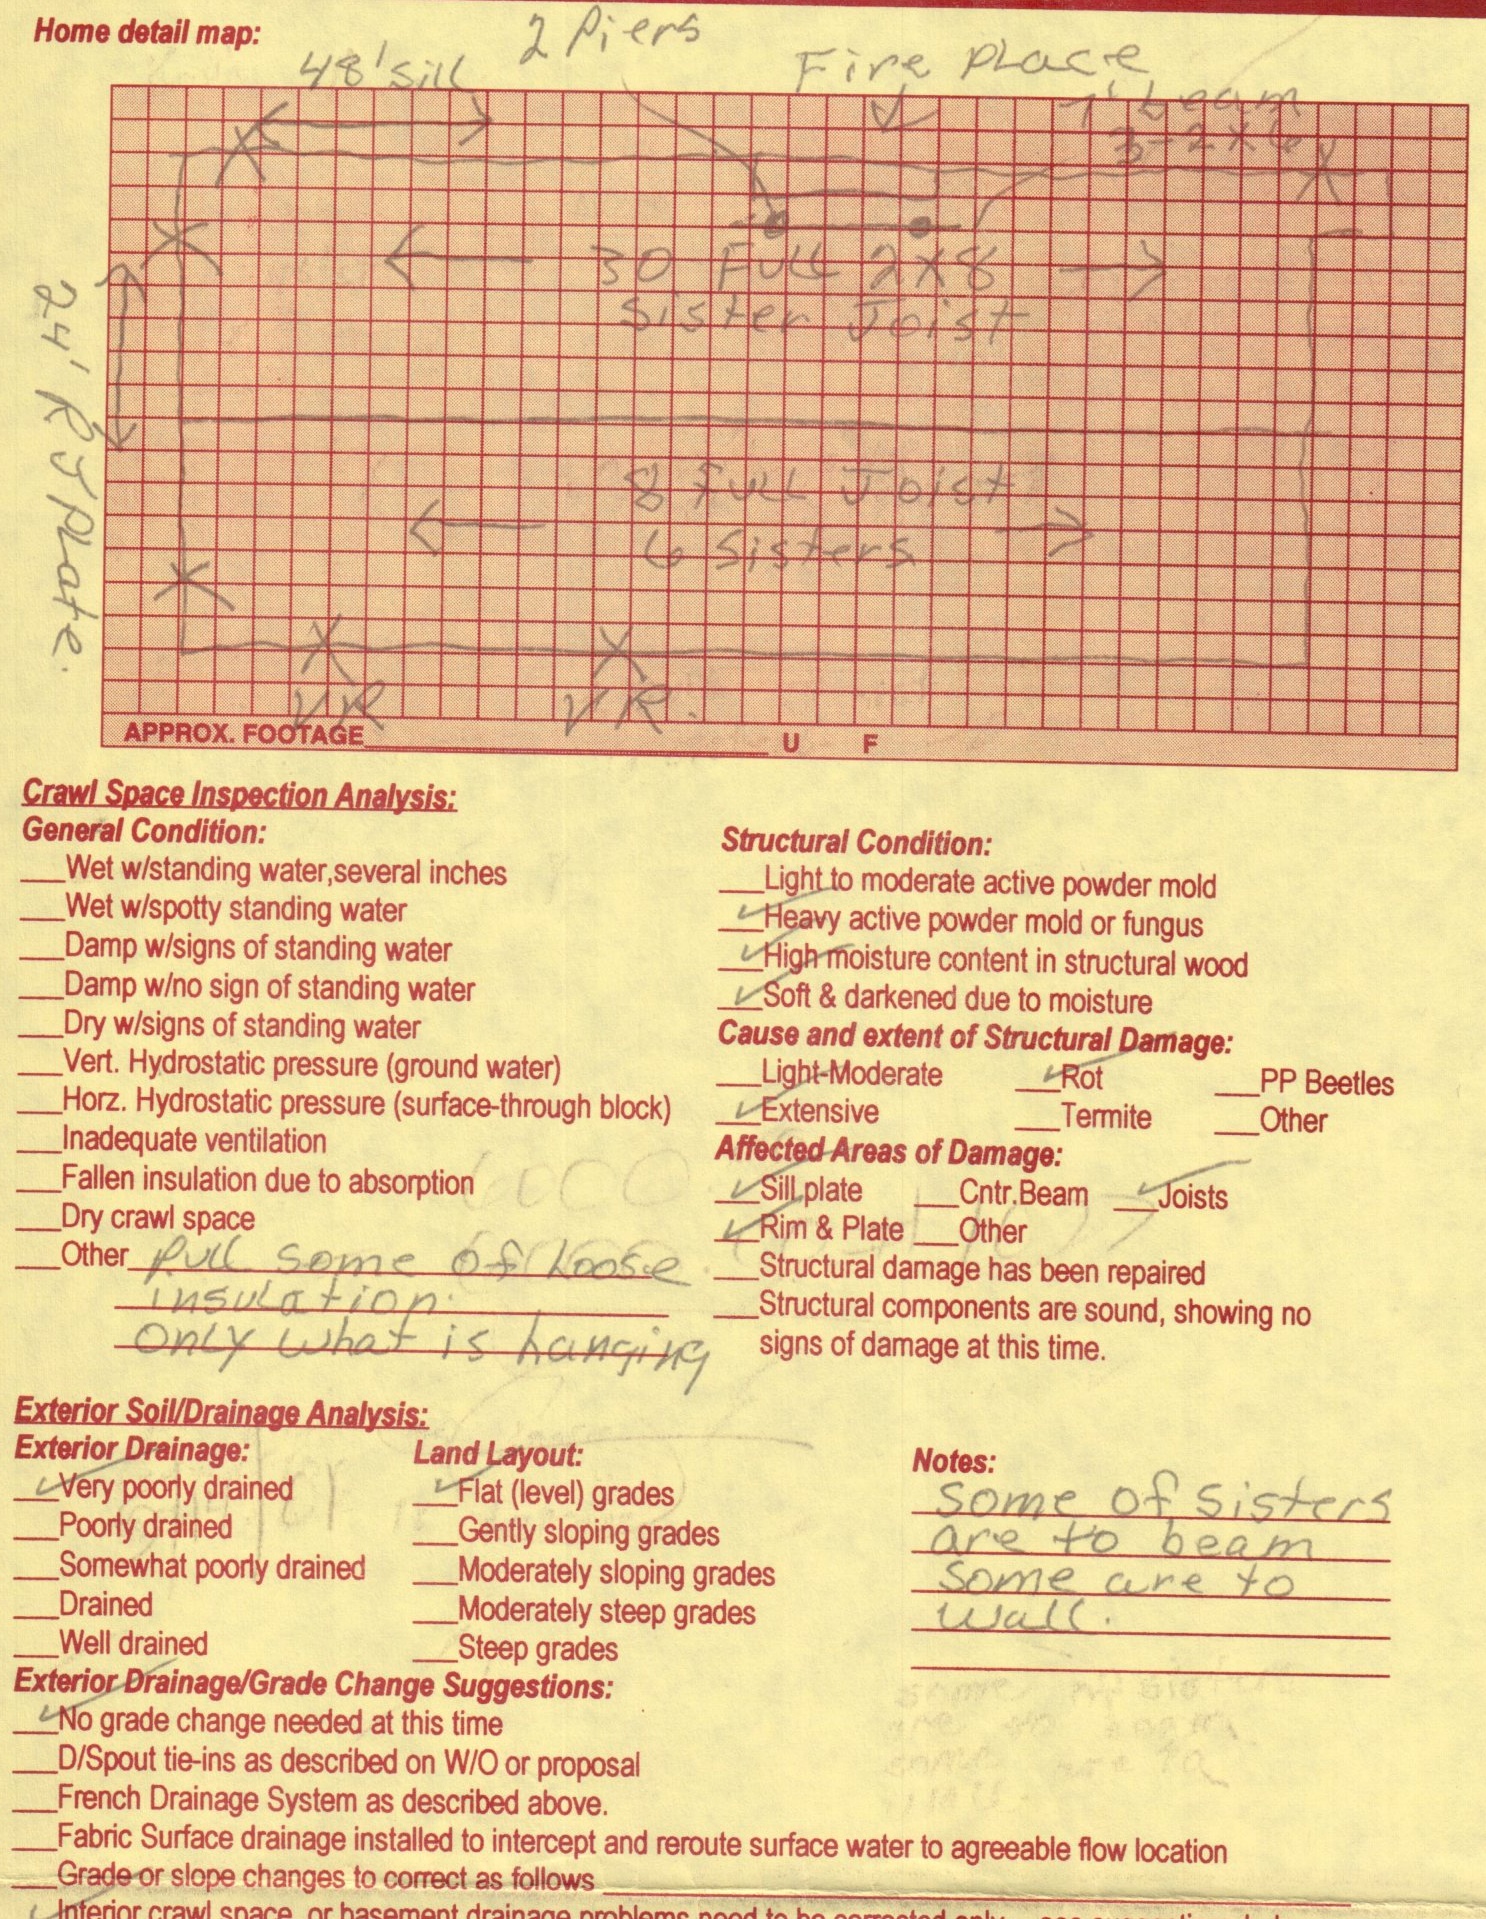 Home detail map:
2 Piers
48' sill
Fire place
7' beam
3-2x6
30 Full 2x8
Sister Joist
24' R & plate.
8 Full Joist
6 Sisters
VR
VR.
APPROX. FOOTAGE U F
Crawl Space Inspection Analysis:
General Condition:
Wet w/standing water,several inches
Wet w/spotty standing water
Damp w/signs of standing water
Damp w/no sign of standing water
Dry w/signs of standing water
Vert. Hydrostatic pressure (ground water)
Horz. Hydrostatic pressure (surface-through block)
Inadequate ventilation
Fallen insulation due to absorption
Dry crawl space
Other Pull some of loose
insulation.
only what is hanging
Structural Condition:
Light to moderate active powder mold
Heavy active powder mold or fungus
High moisture content in structural wood
Soft & darkened due to moisture
Cause and extent of Structural Damage:
Light-Moderate Rot PP Beetles
Extensive Termite Other
Affected Areas of Damage:
Sill plate Cntr.Beam Joists
Rim & Plate Other
Structural damage has been repaired
Structural components are sound, showing no
signs of damage at this time.
Exterior Soil/Drainage Analysis:
Exterior Drainage:
Very poorly drained
Poorly drained
Somewhat poorly drained
Drained
Well drained
Land Layout:
Flat (level) grades
Gently sloping grades
Moderately sloping grades
Moderately steep grades
Steep grades
Notes:
some of sisters
are to beam
some are to
wall.
Exterior Drainage/Grade Change Suggestions:
No grade change needed at this time
D/Spout tie-ins as described on W/O or proposal
French Drainage System as described above.
Fabric Surface drainage installed to intercept and reroute surface water to agreeable flow location
Grade or slope changes to correct as follows
Interior crawl space or basement drainage problems need to be corrected only